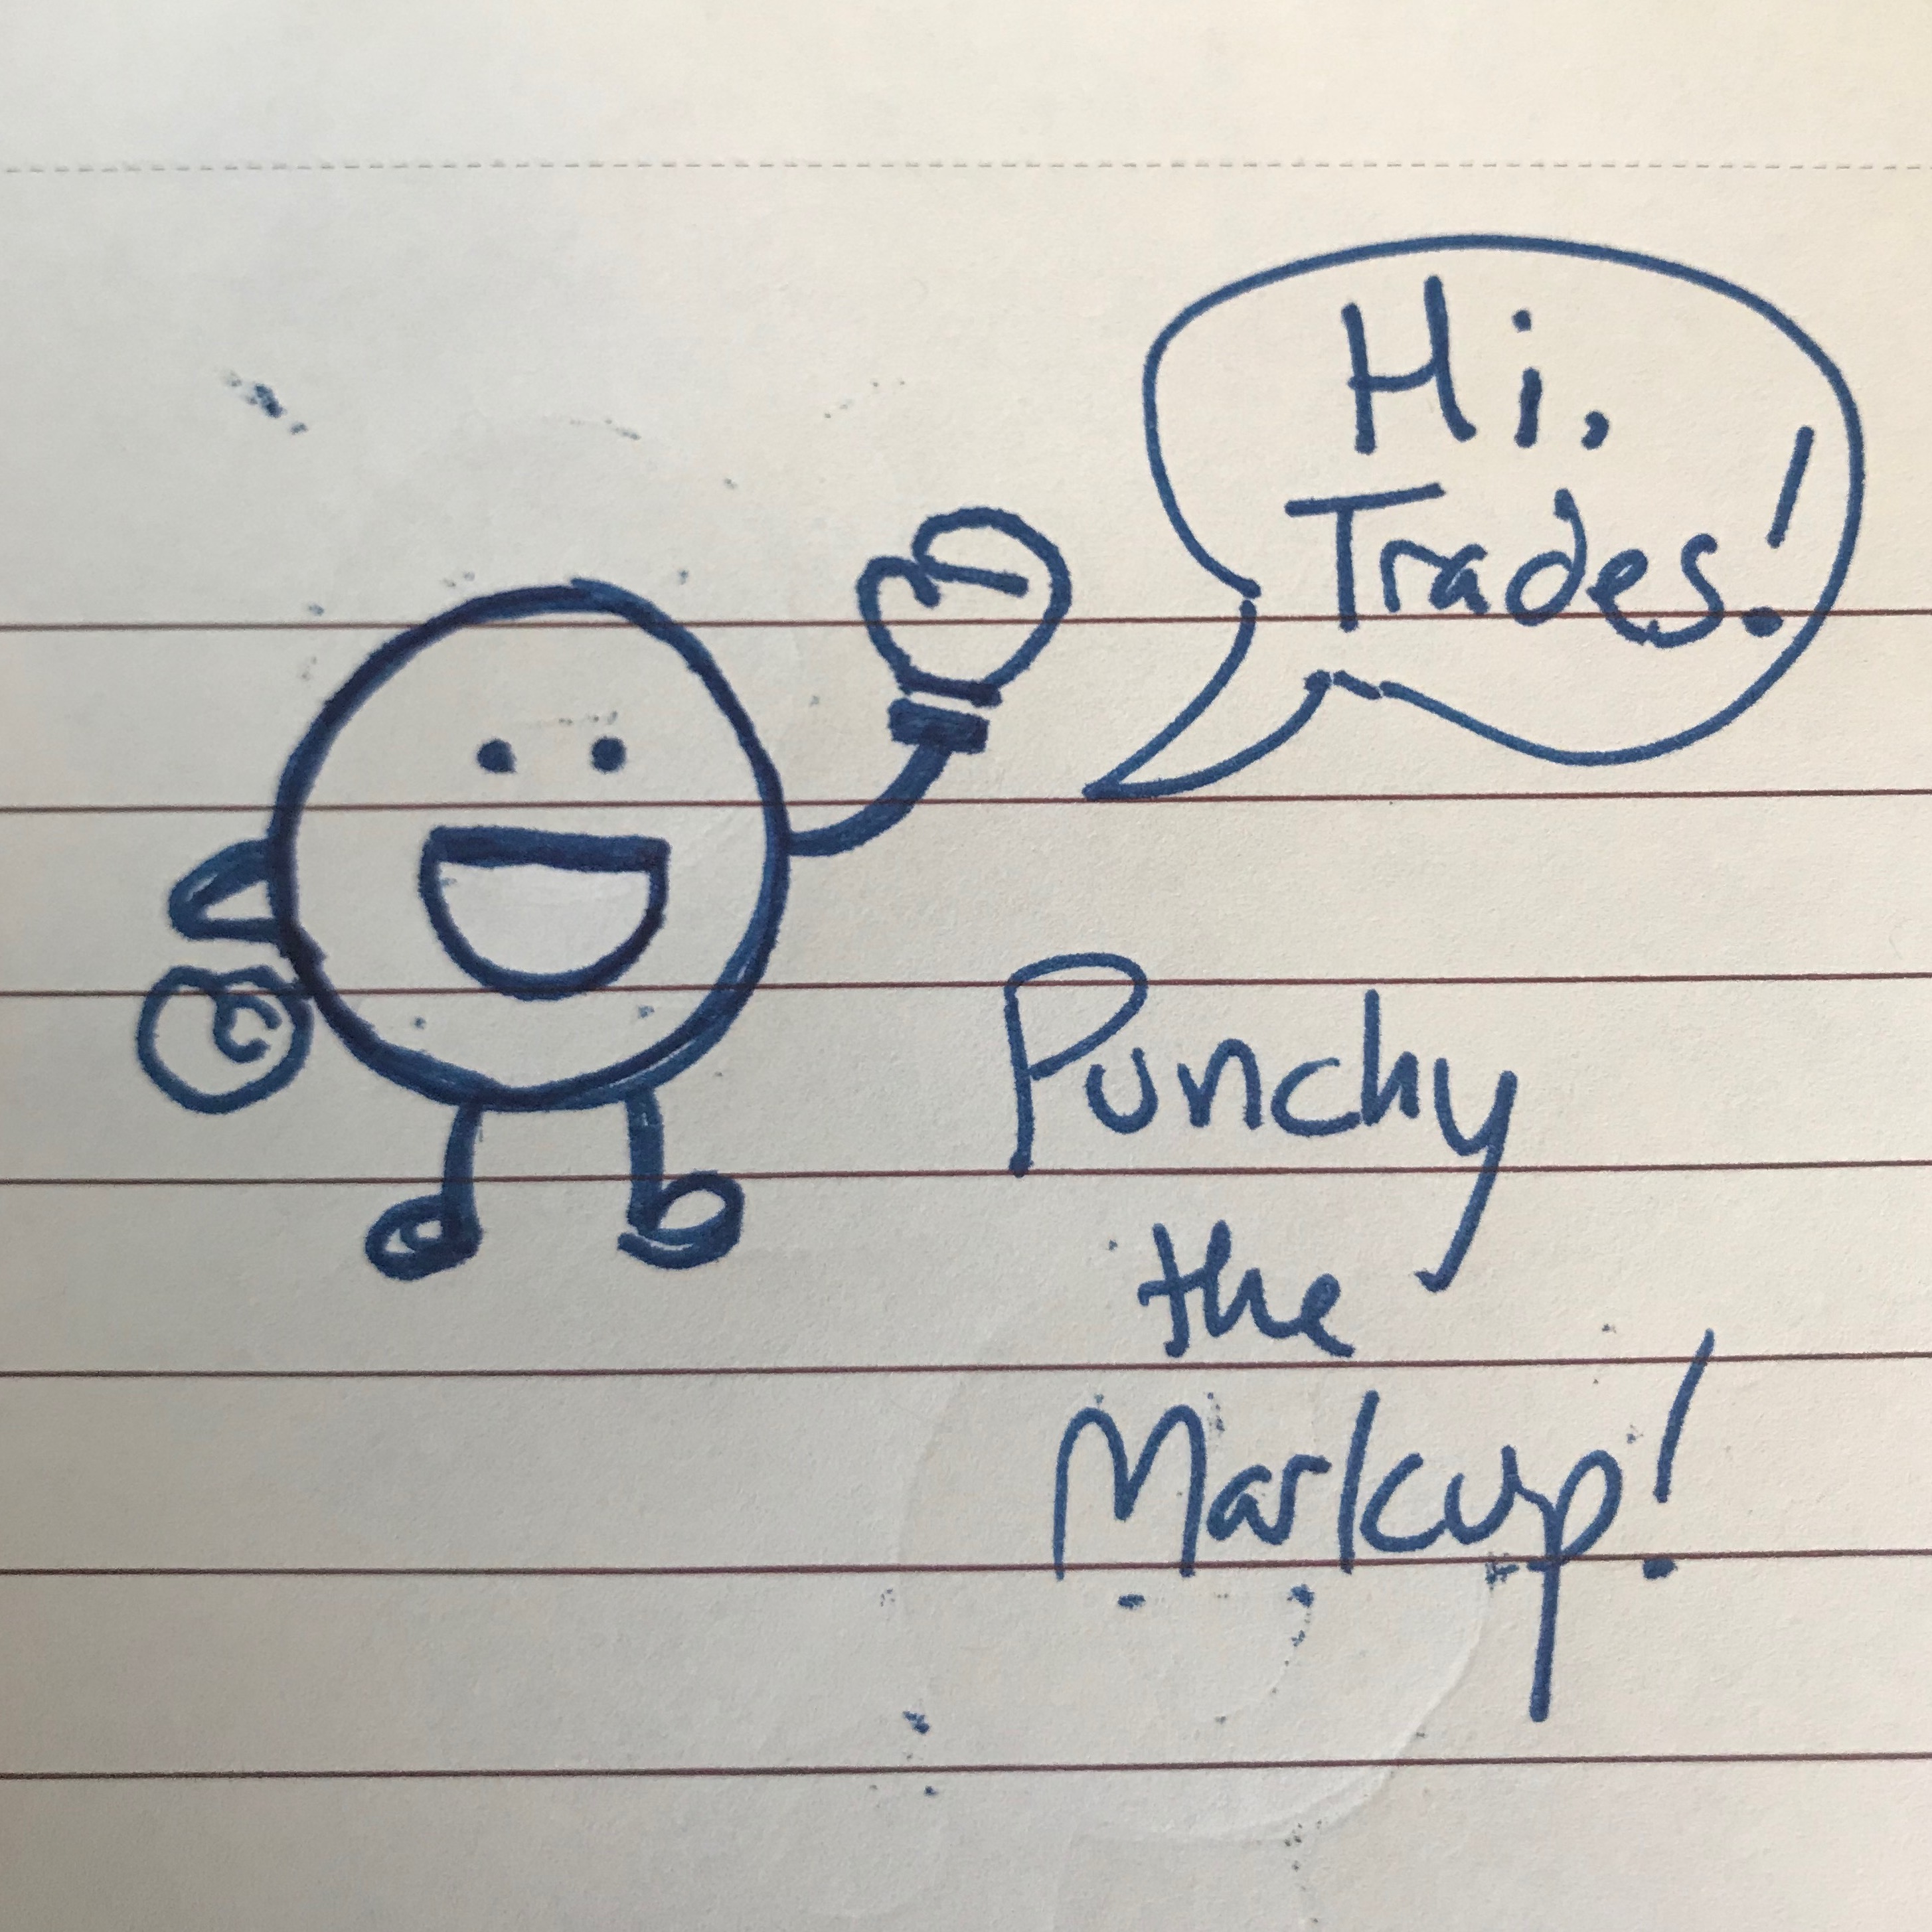 Hi,
Trades!
Punchy
the
Markup!